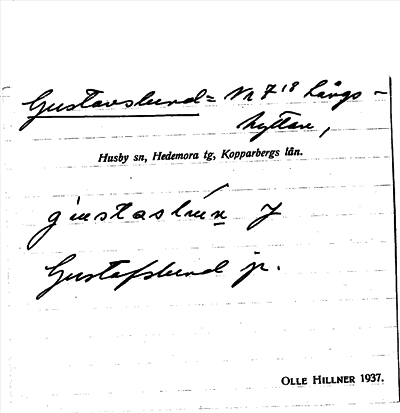 Gustavslund = N 7¹⁸ Långs-
hyttan,
Husby sn, Hedemora tg, Kopparbergs län.
Gustafslund jr.
OLLE HILLNER 1937.